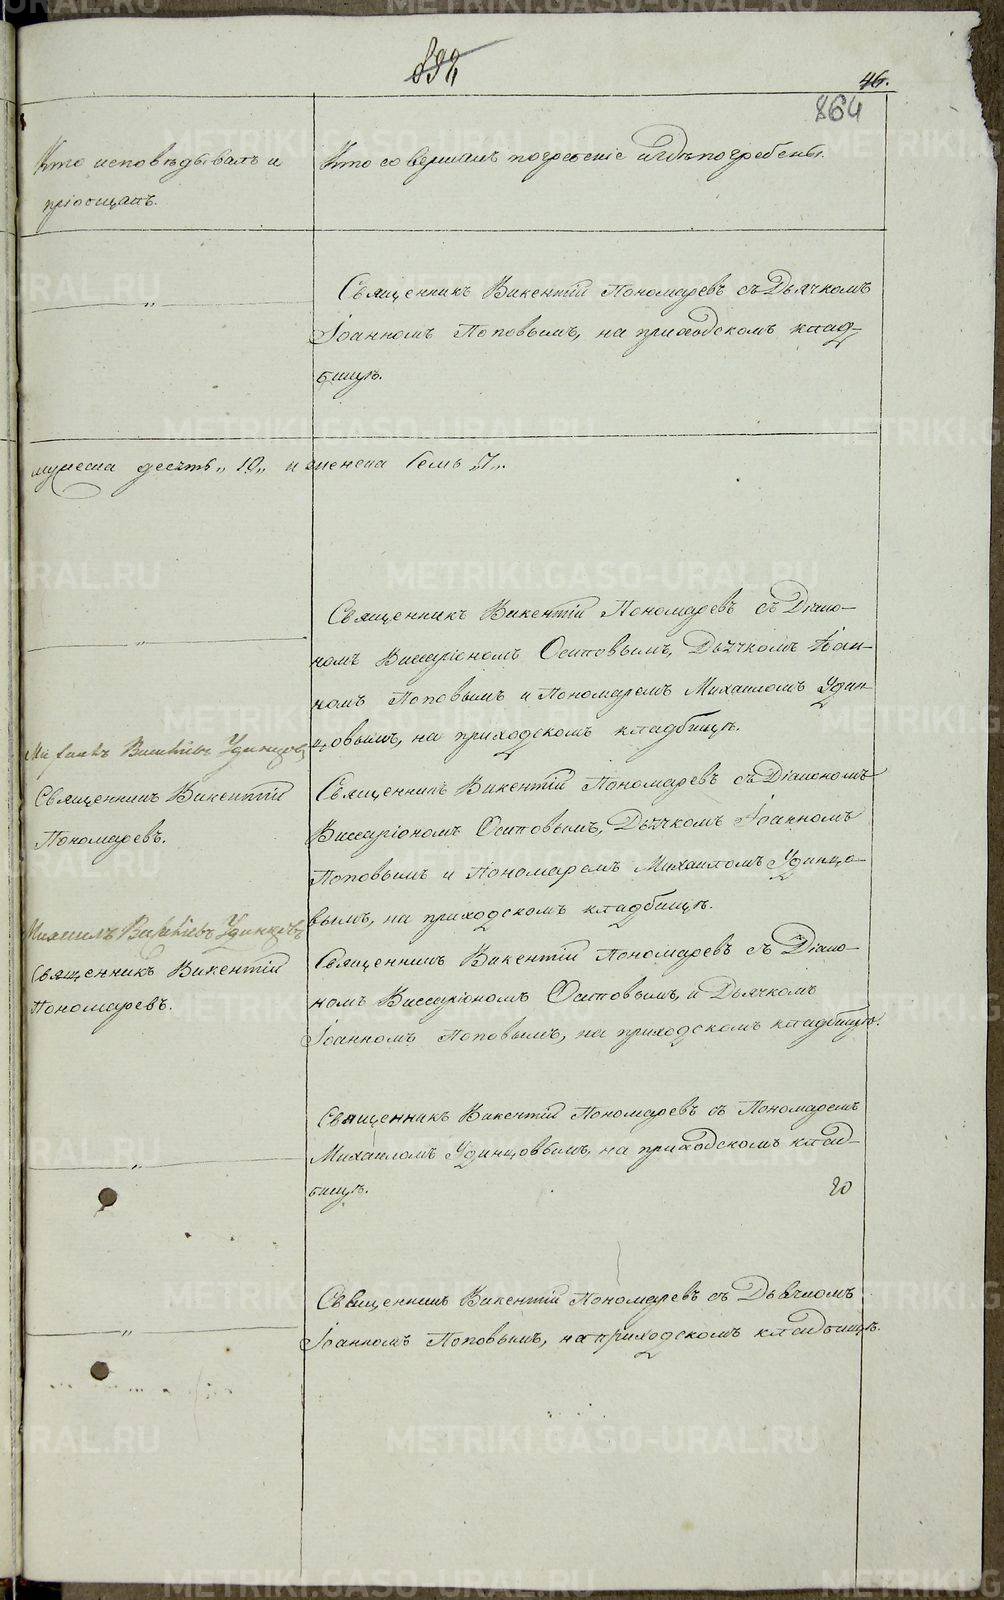 892
46.
864
Кто исповѣдывалъ и
пріобщалъ.
Кто совершалъ погребеніе и гдѣ погребены.
„
Священникъ Викентій Пономаревъ съ Дьячкомъ
Іоанномъ Поповымъ, на приходскомъ клад-
бищѣ.
мужеска десять „10„ и женска семь „7„.
„
Священникъ Викентій Пономаревъ съ Діако-
номъ Виссаріономъ Осиповымъ, Дьячкомъ Іоан-
номъ Поповымъ и Пономаремъ Михаиломъ Удин-
цовымъ, на приходскомъ кладбищѣ.
Удинцовъ
Священникъ Викентій
Пономаревъ.
Священникъ Викентій Пономаревъ съ Діакономъ
Виссаріономъ Осиповымъ, Дьячкомъ Іоанномъ
Поповымъ и Пономаремъ Михаиломъ Удинцо-
вымъ, на приходскомъ кладбищѣ.
Удинцовъ
Священникъ Викентій
Пономаревъ.
Священникъ Викентій Пономаревъ съ Діако-
номъ Виссаріономъ Осиповымъ, и Дьячкомъ
Іоанномъ Поповымъ, на приходскомъ кладбищѣ.
„
Священникъ Викентій Пономаревъ съ Пономаремъ
Михаиломъ Удинцовымъ, на приходскомъ клад-
бищѣ.
20
„
Священникъ Викентій Пономаревъ съ Дьячкомъ
Іоанномъ Поповымъ, на приходскомъ кладбищѣ.
METRIKI.GASO-URAL.RU